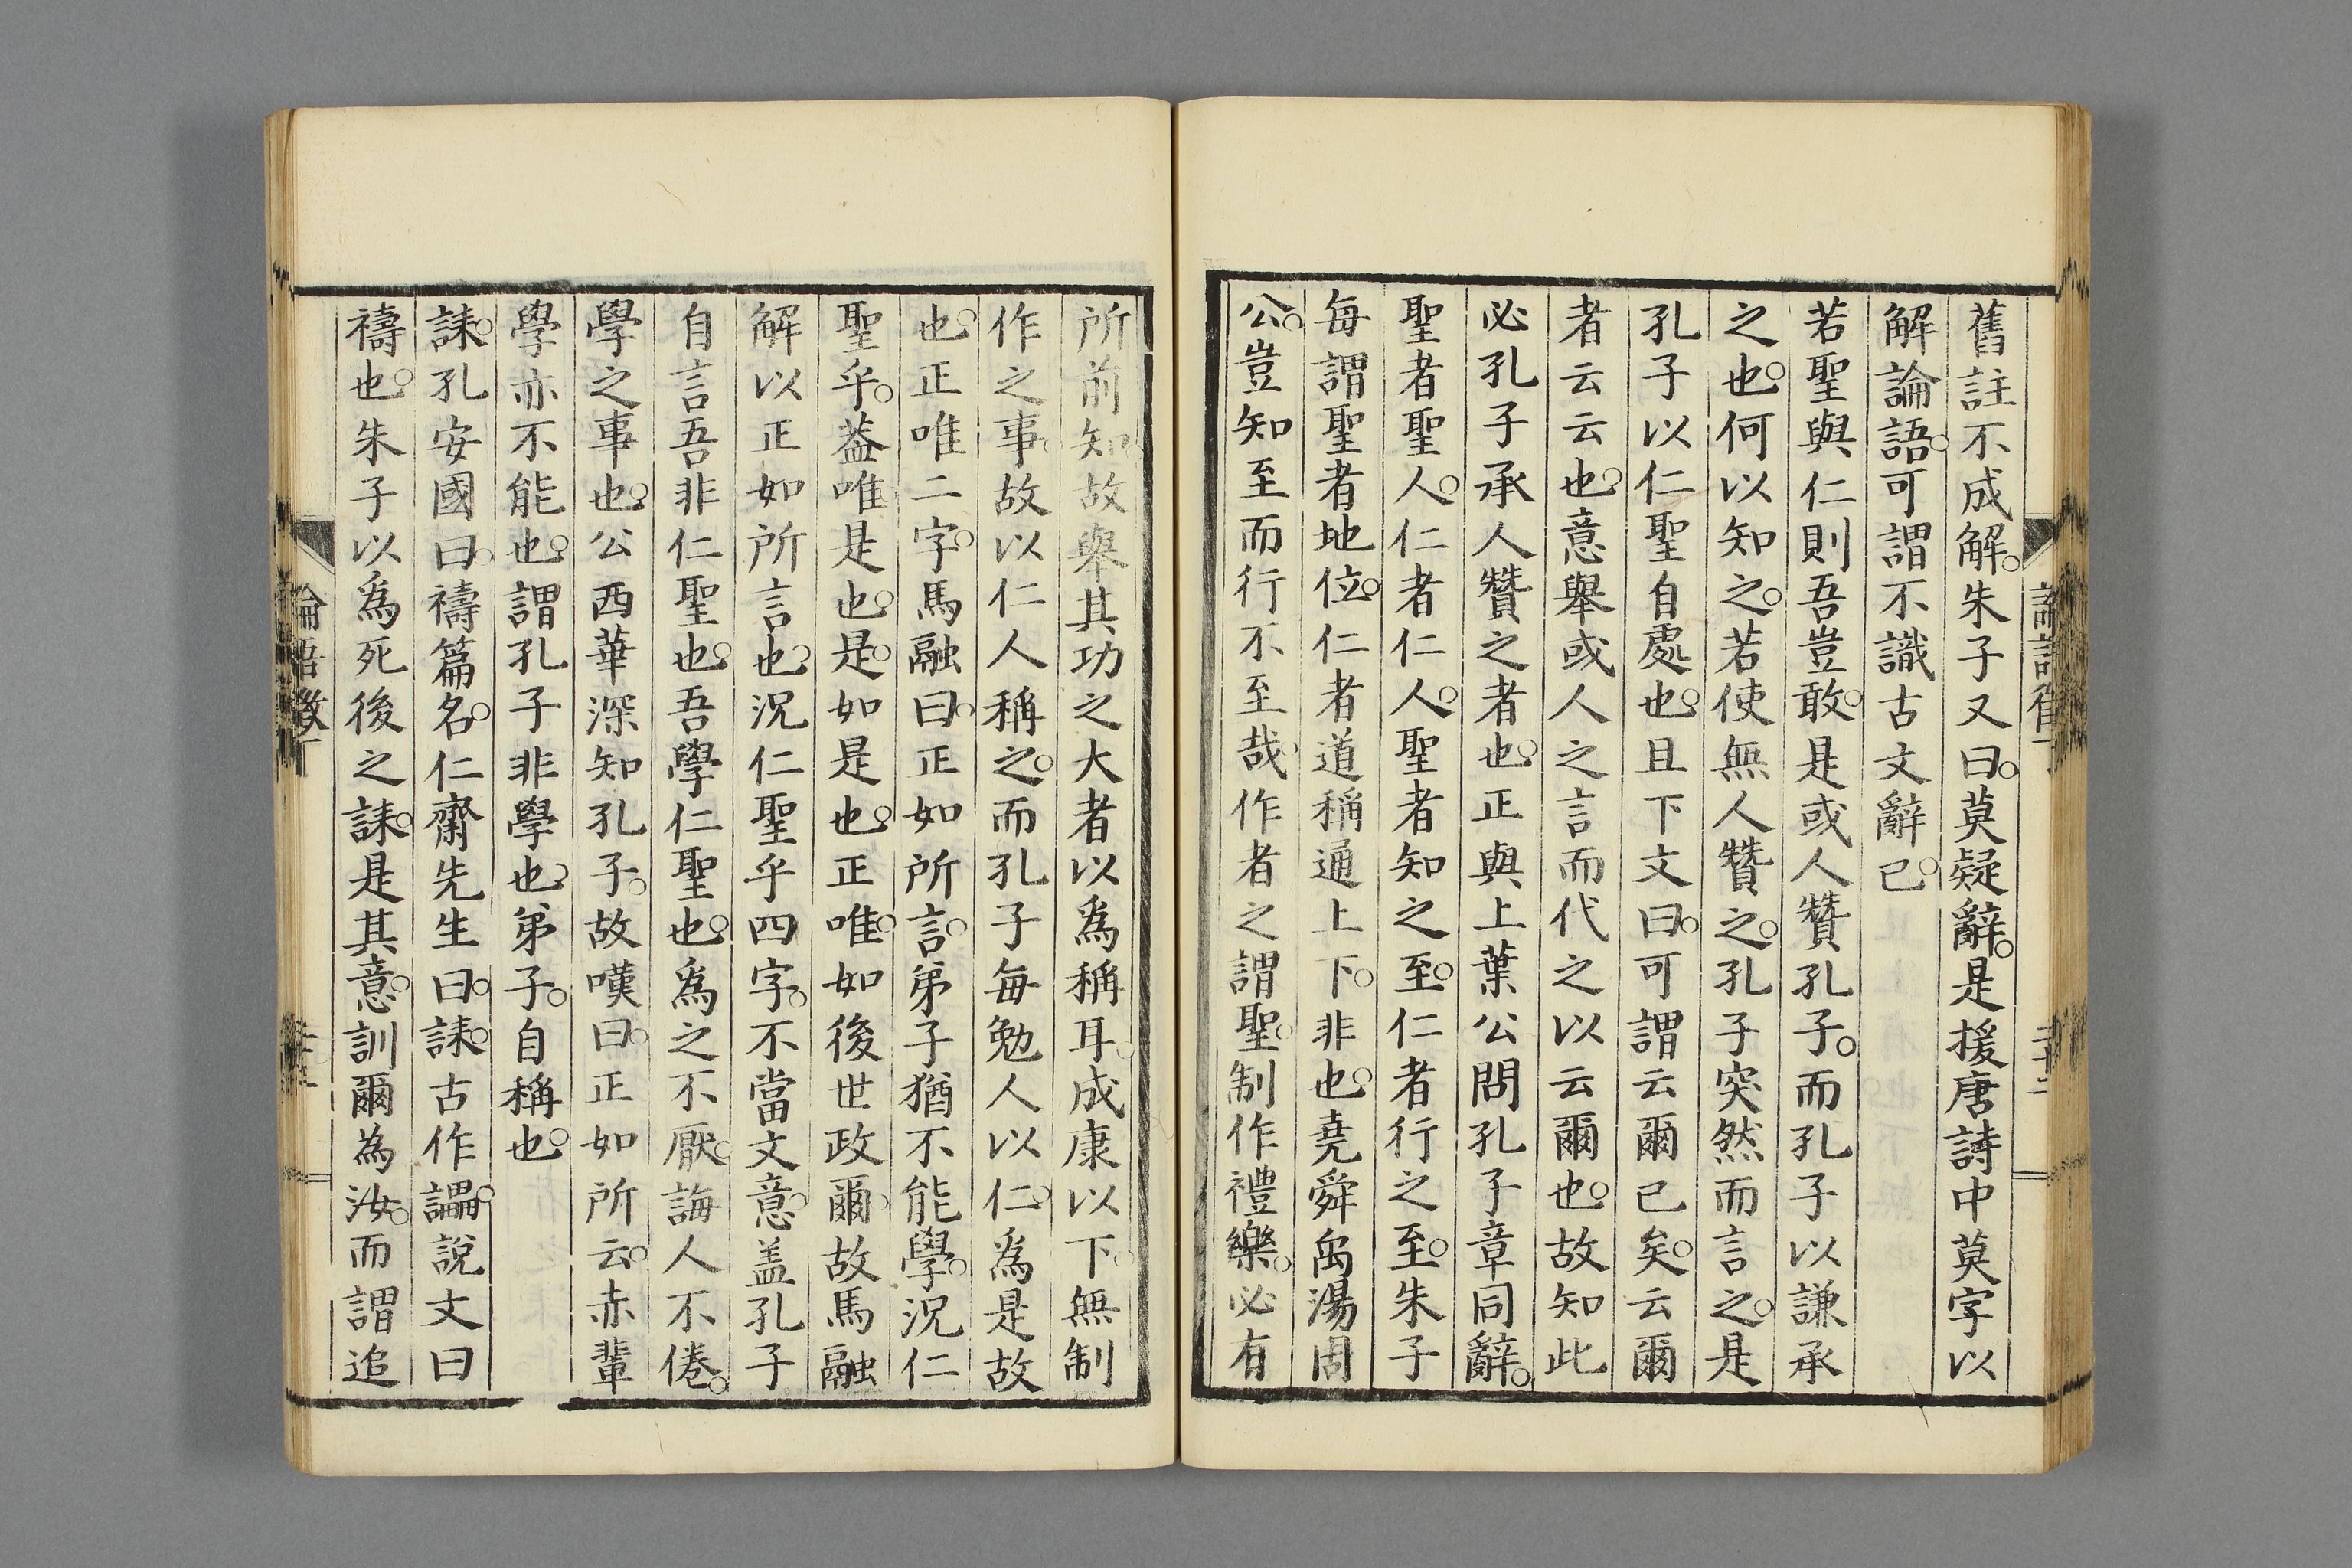 舊註不成解。朱子又曰。莫疑辭。是援唐詩中莫字以
解論語。可謂不識古文辭已。
若聖與仁則吾豈敢。是或人贊孔子。而孔子以謙承
之也。何以知之。若使無人贊之。孔子突然而言之。是
孔子以仁聖自處也。且下文曰。可謂云爾已矣。云爾
者云云也。意舉或人之言而代之以云爾也。故知此
必孔子承人贊之者也。正與上葉公問孔子章同辭。
聖者聖人。仁者仁人。聖者知之至。仁者行之至。朱子
每謂聖者地位。仁者道稱通上下。非也。堯舜禹湯周
公。豈知至而行不至哉。作者之謂聖。制作禮樂。必有
所前知。故舉其功之大者以為稱耳。成康以下。無制
作之事。故以仁人稱之。而孔子每勉人以仁。為是故
也。正唯二字。馬融曰。正如所言。弟子猶不能學。況仁
聖乎。蓋唯是也。是。如是也。正唯。如後世政爾。故馬融
解以正如所言也。況仁聖乎四字。不當文意。盖孔子
自言吾非仁聖也。吾學仁聖也。為之不厭。誨人不倦。
學之事也。公西華深知孔子。故嘆曰。正如所云。赤輩
學亦不能也。謂孔子非學也。弟子。自稱也。
誄。孔安國曰。禱篇名。仁齋先生曰。誄。古作讄。說文曰
禱也。朱子以為死後之誄。是其意。訓爾為汝。而謂追
論語徵丁